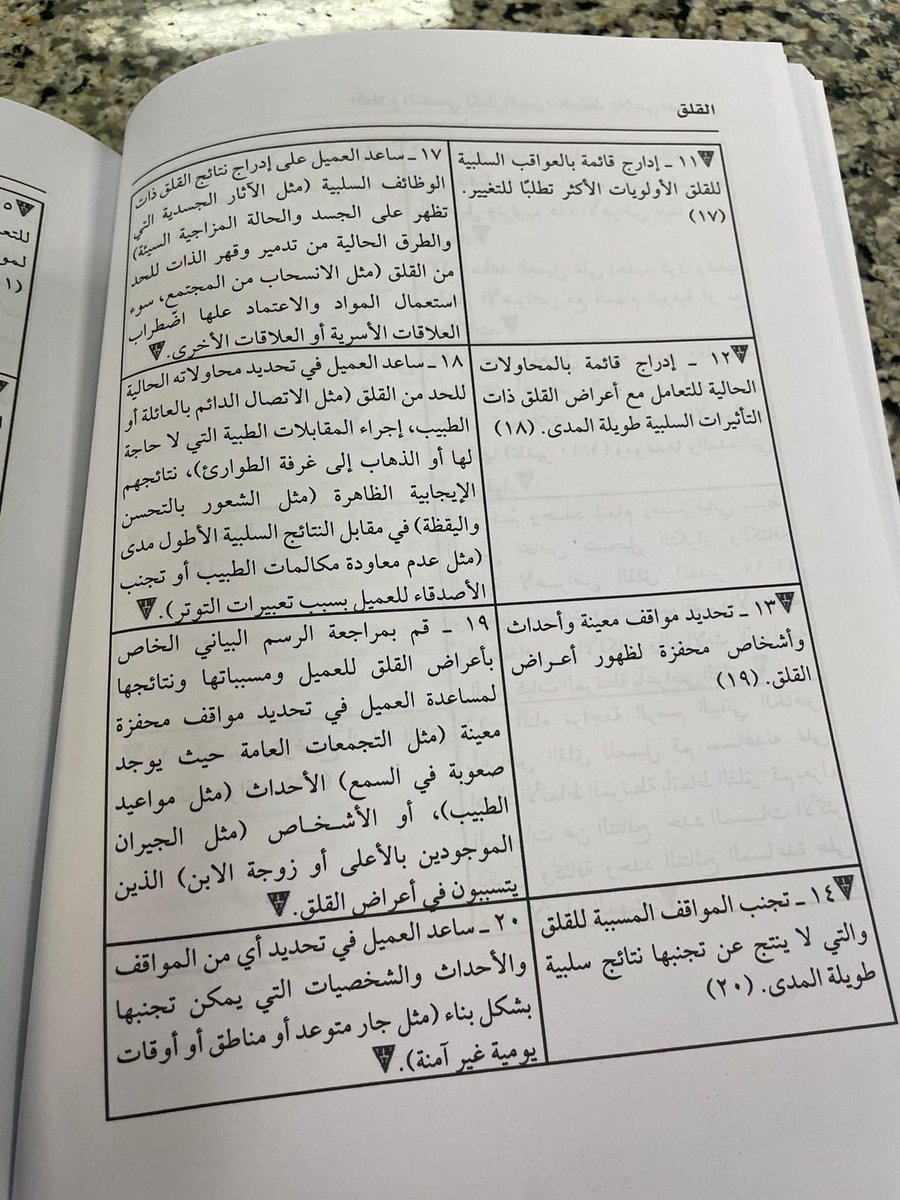 القلق
١١ ـ إدارج قائمة بالعواقب السلبية
للقلق الأولويات الأكثر تطلبًا للتغيير.
(١٧)
١٧ ـ ساعد العميل على إدراج نتائج القلق ذات
الوظائف السلبية (مثل الآثار الجسدية التي
تظهر على الجسد والحالة المزاجية السيئة)
والطرق الحالية من تدمير وقهر الذات للحد
من القلق (مثل الانسحاب من المجتمع، سوء
استعمال المواد والاعتماد علها اضّطراب
العلاقات الأسرية أو العلاقات الأخرى.
١٢ ـ إدراج قائمة بالمحاولات
الحالية للتعامل مع أعراض القلق ذات
التأثيرات السلبية طويلة المدى. (١٨)
١٨ ـ ساعد العميل في تحديد محاولاته الحالية
للحد من القلق (مثل الاتصال الدائم بالعائلة أو
الطبيب، إجراء المقابلات الطبية التي لا حاجة
لها أو الذهاب إلى غرفة الطوارئ)، نتائجهم
الإيجابية الظاهرة (مثل الشعور بالتحسن
واليقظة) في مقابل النتائج السلبية الأطول مدى
(مثل عدم معاودة مكالمات الطبيب أو تجنب
الأصدقاء للعميل بسبب تعبيرات التوتر).
١٣ ـ تحديد مواقف معينة وأحداث
وأشخاص محفزة لظهور أعراض
القلق. (١٩)
١٩ ـ قم بمراجعة الرسم البياني الخاص
بأعراض القلق للعميل ومسبباتها ونتائجها
لمساعدة العميل في تحديد مواقف محفزة
معينة (مثل التجمعات العامة حيث يوجد
صعوبة في السمع) الأحداث (مثل مواعيد
الطبيب)، أو الأشخاص (مثل الجيران
الموجودين بالأعلى أو زوجة الابن) الذين
يتسببون في أعراض القلق.
١٤ ـ تجنب المواقف المسببة للقلق
والتي لا ينتج عن تجنبها نتائج سلبية
طويلة المدى. (٢٠)
٢٠ ـ ساعد العميل في تحديد أي من المواقف
والأحداث والشخصيات التي يمكن تجنبها
بشكل بناء (مثل جار متوعد أو مناطق أو أوقات
يومية غير آمنة).